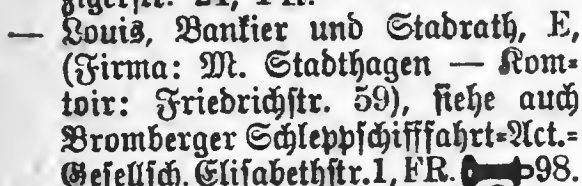 — Louis, Bankier und Stadtrath, E,
(Firma: M. Stadthagen — Kom=
toir: Friedrichstr. 59), siehe auch
Bromberger Schleppschifffahrt=Act.=
Gesellsch. Elisabethstr.1, FR. 98.